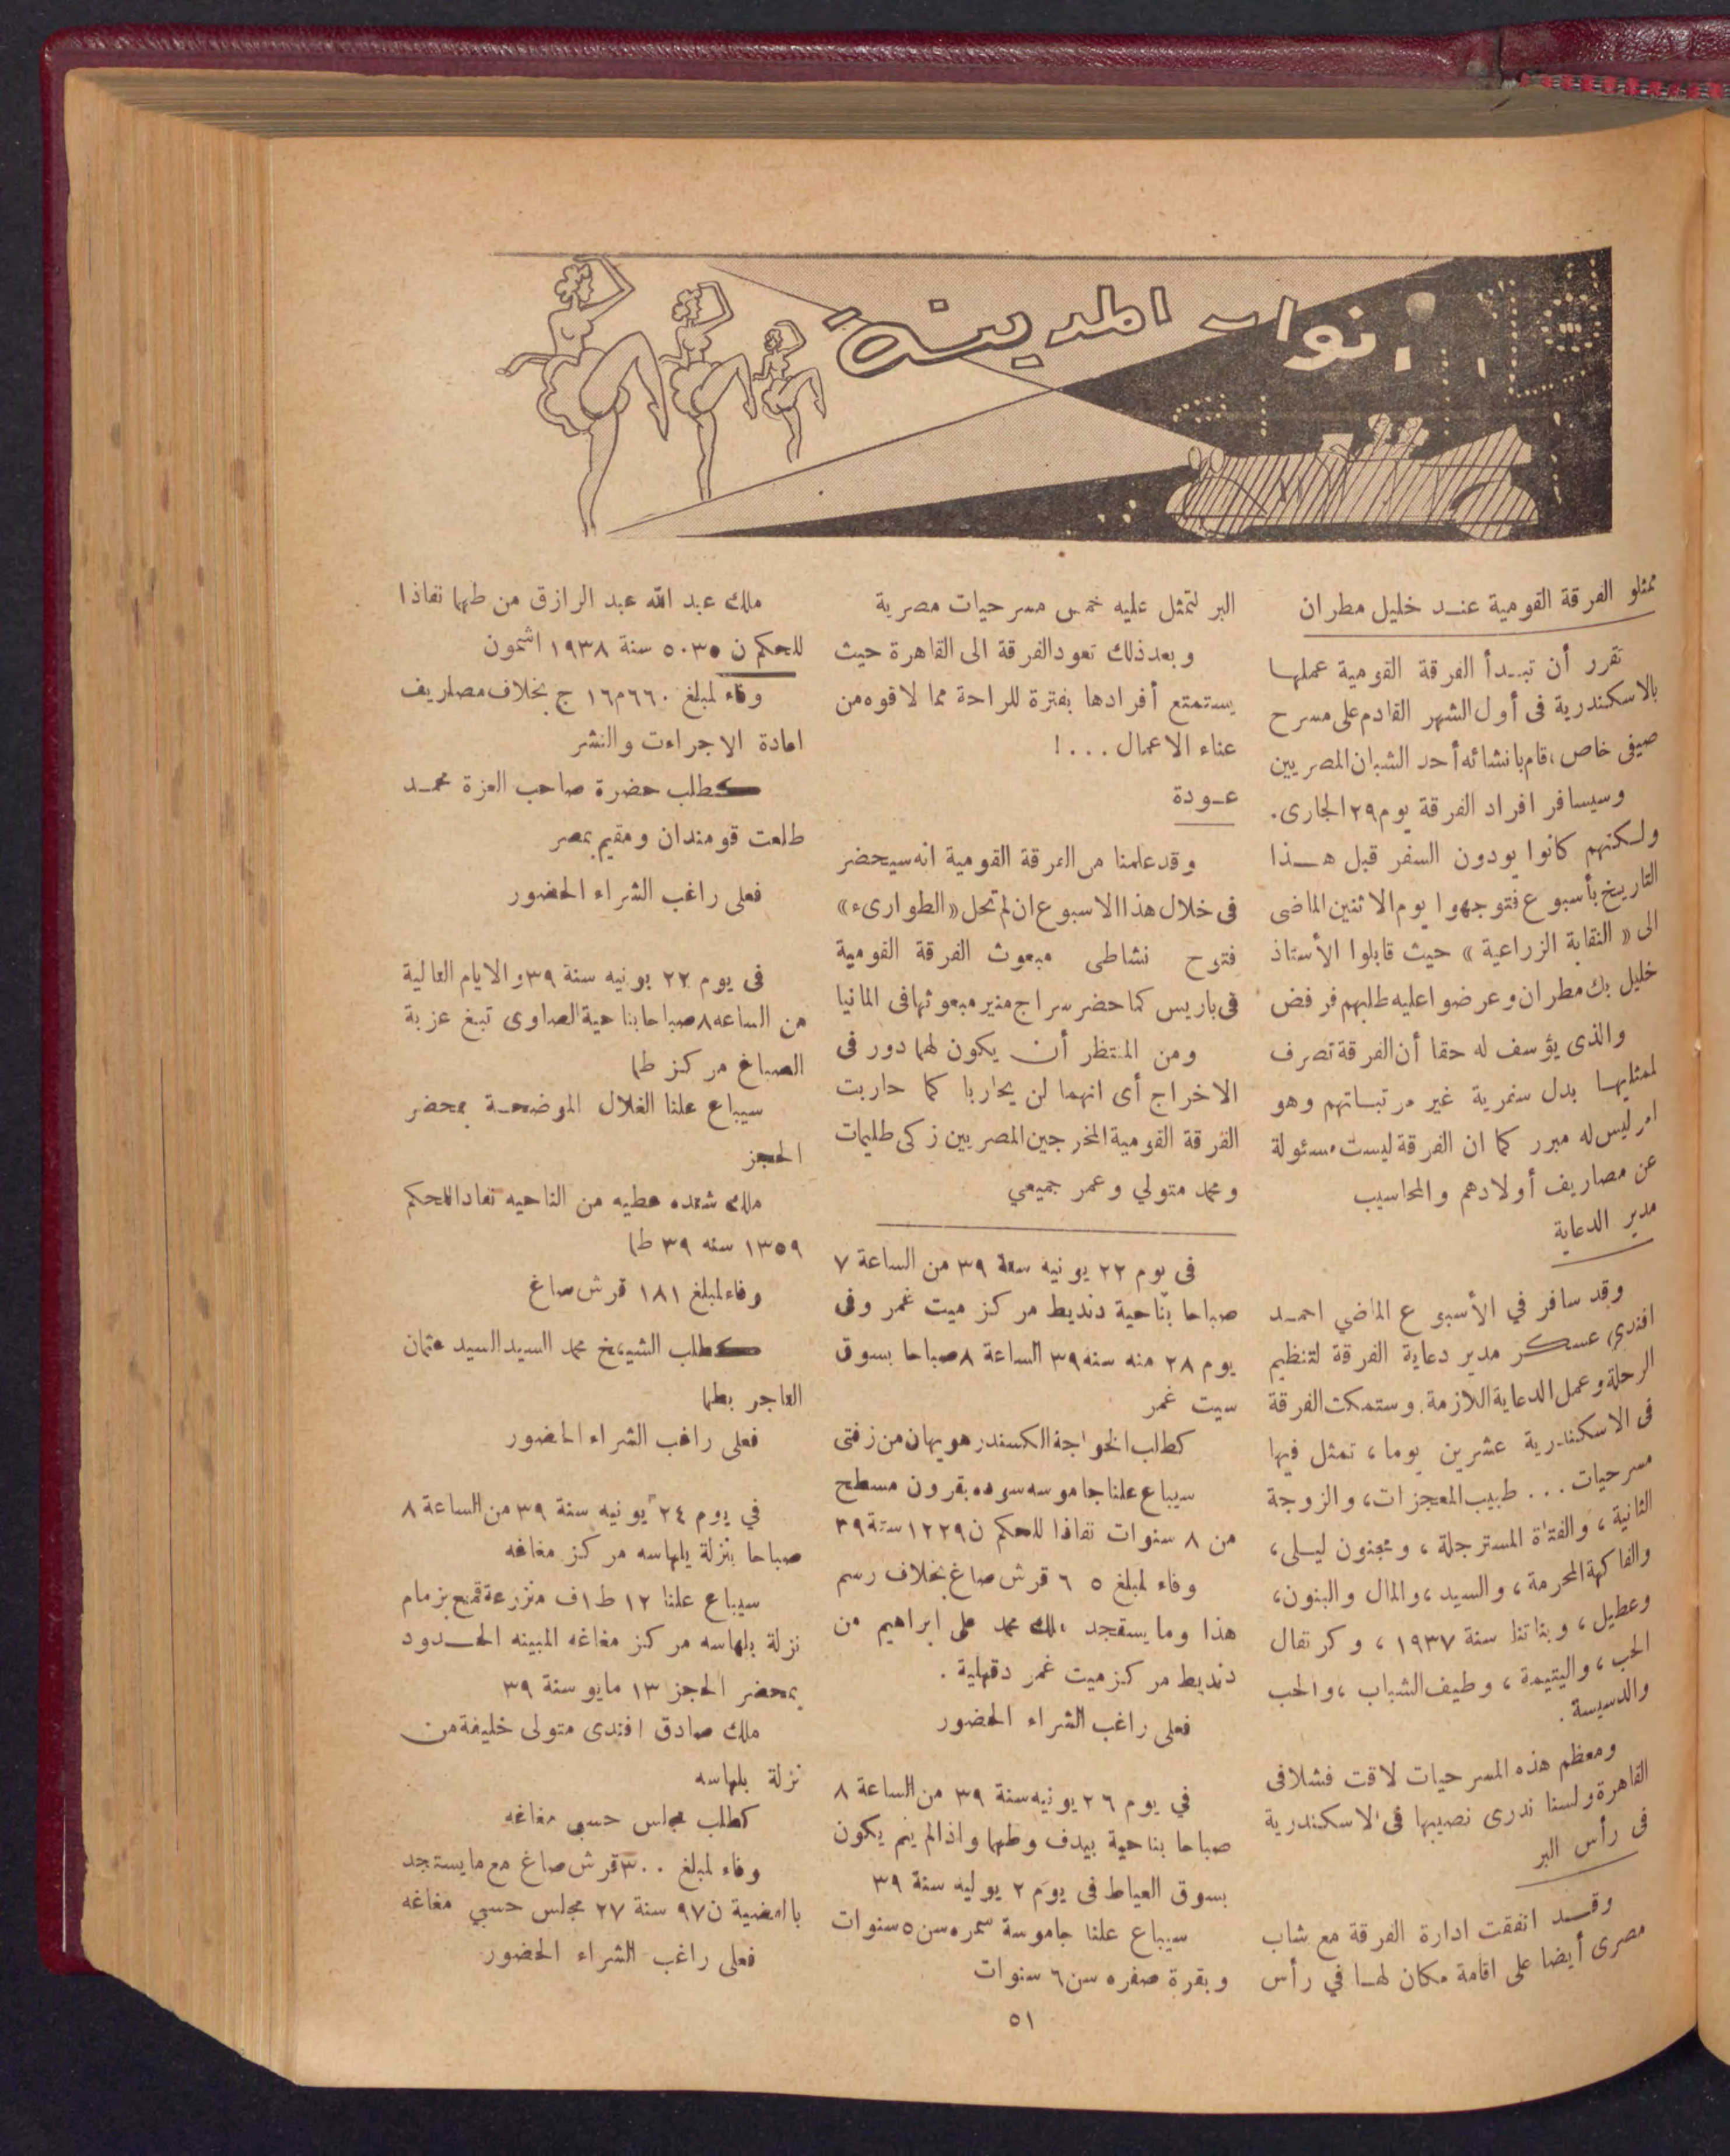 انوار المدينة
ممثلو الفرقة القومية عند خليل مطران
تقرر أن تبدأ الفرقة القومية عملها
بالاسكندرية فى أول الشهر القادم على مسرح
صيفى خاص، قام بانشائه أحد الشبان المصريين
وسيسافر افراد الفرقة يوم ٢٩ الجارى.
ولكنهم كانوا يودون السفر قبل هذا
التاريخ بأسبوع فتوجهوا يوم الاثنين الماضى
الى « النقابة الزراعية » حيث قابلوا الأستاذ
خليل بك مطران وعرضوا عليه طلبهم فرفض
والذى يؤسف له حقا أن الفرقة تصرف
لممثليها بدل سفرية غير مرتباتهم وهو
امر ليس له مبرر كما ان الفرقة ليست مسئولة
عن مصاريف أولادهم والمحاسيب
مدير الدعاية
وقد سافر في الأسبوع الماضي احمد
افندي عسكر مدير دعاية الفرقة لتنظيم
الرحلة وعمل الدعاية اللازمة. وستمكث الفرقة
فى الاسكندرية عشرين يوما، تمثل فيها
مسرحيات ... طبيب المعجزات، والزوجة
الثانية، والفتاة المسترجلة، ومجنون ليلى،
والفاكهة المحرمة، والسيد، والمال والبنون،
وعطيل، وبناتنا سنة ١٩٣٧، وكرنفال
الحب، واليتيمة، وطيف الشباب، والحب
والدسيسة.
ومعظم هذه المسرحيات لاقت فشلا فى
القاهرة ولسنا ندرى نصيبها فى الاسكندرية
فى رأس البر
وقد اتفقت ادارة الفرقة مع شاب
مصرى أيضا على اقامة مكان لها في رأس
البر لتمثل عليه خمس مسرحيات مصرية
وبعد ذلك تعود الفرقة الى القاهرة حيث
يستمتع أفرادها بفترة للراحة مما لاقوه من
عناء الاعمال ...!
عودة
وقد علمنا من الفرقة القومية انه سيحضر
فى خلال هذا الاسبوع ان لم تحل «الطوارىء»
فتوح نشاطى مبعوث الفرقة القومية
فى باريس كما حضر سراج منير مبعوثها فى المانيا
ومن المنتظر أن يكون لهما دور فى
الاخراج أى انهما لن يحاربا كما حاربت
الفرقة القومية المخرجين المصريين زكى طليمات
ومحمد متولي وعمر جميعي
فى يوم ٢٢ يونيه سنة ٣٩ من الساعة ٧
صباحا بناحية دنديط مركز ميت غمر وفى
يوم ٢٨ منه سنه ٣٩ الساعة ٨ صباحا بسوق
سيت غمر
كطلب الخواجة الكسندر هويهان من زفتى
سيباع علنا جاموسه سوده بقرون مسطح
من ٨ سنوات نفاذا للحكم ن ١٢٢٩ سنة ٣٩
وفاء لمبلغ ٥ ٦ قرش صاغ بخلاف رسم
هذا وما يستجد ملك محمد على ابراهيم من
دنديط مركز ميت غمر دقهلية.
فعلى راغب الشراء الحضور
في يوم ٢٦ يونيه سنة ٣٩ من الساعة ٨
صباحا بناحية بيدف وطهما واذا لم يتم يكون
بسوق العياط فى يوم ٢ يوليه سنة ٣٩
سيباع علنا جاموسة سمره سن ٥ سنوات
وبقرة صفره سن ٦ سنوات
ملك عبد الله عبد الرازق من طهما نفاذا
للحكم ن ٥٠٣٥ سنة ١٩٣٨ اشمون
وفاء لمبلغ ٦٦٠م١٦ ج بخلاف مصاريف
اعادة الاجراءت والنشر
كطلب حضرة صاحب العزة محمد
طلعت قومندان ومقيم بمصر
فعلى راغب الشراء الحضور
فى يوم ٢٢ يونيه سنة ٣٩ والايام التالية
من الساعه ٨ صباحا بناحية الصاوى تبغ عزبة
الصباغ مركز طما
سيباع علنا الغلال الموضحة بمحضر
الحجز
ملك شنده عطيه من الناحيه نفاذا للحكم
١٣٥٩ سنه ٣٩ طما
وفاء لمبلغ ١٨١ قرش صاغ
كطلب الشيخ محمد السيد السيد عثمان
التاجر بطما
فعلى راغب الشراء الحضور
في يوم ٢٤ يونيه سنة ٣٩ من الساعة ٨
صباحا بنزلة بلهاسه مركز مغاغه
سيباع علنا ١٢ ط ١ف منزرعة قمح بزمام
نزلة بلهاسه مركز مغاغه المبينه الحدود
بمحضر الحجز ١٣ مايو سنة ٣٩
ملك صادق افندى متولى خليفة من
نزلة بلهاسه
كطلب مجلس حسبي مغاغه
وفاء لمبلغ ٣٠٠ قرش صاغ مع ما يستجد
بالقضية ن ٩٧ سنة ٢٧ مجلس حسبي مغاغه
فعلى راغب الشراء الحضور
٥١